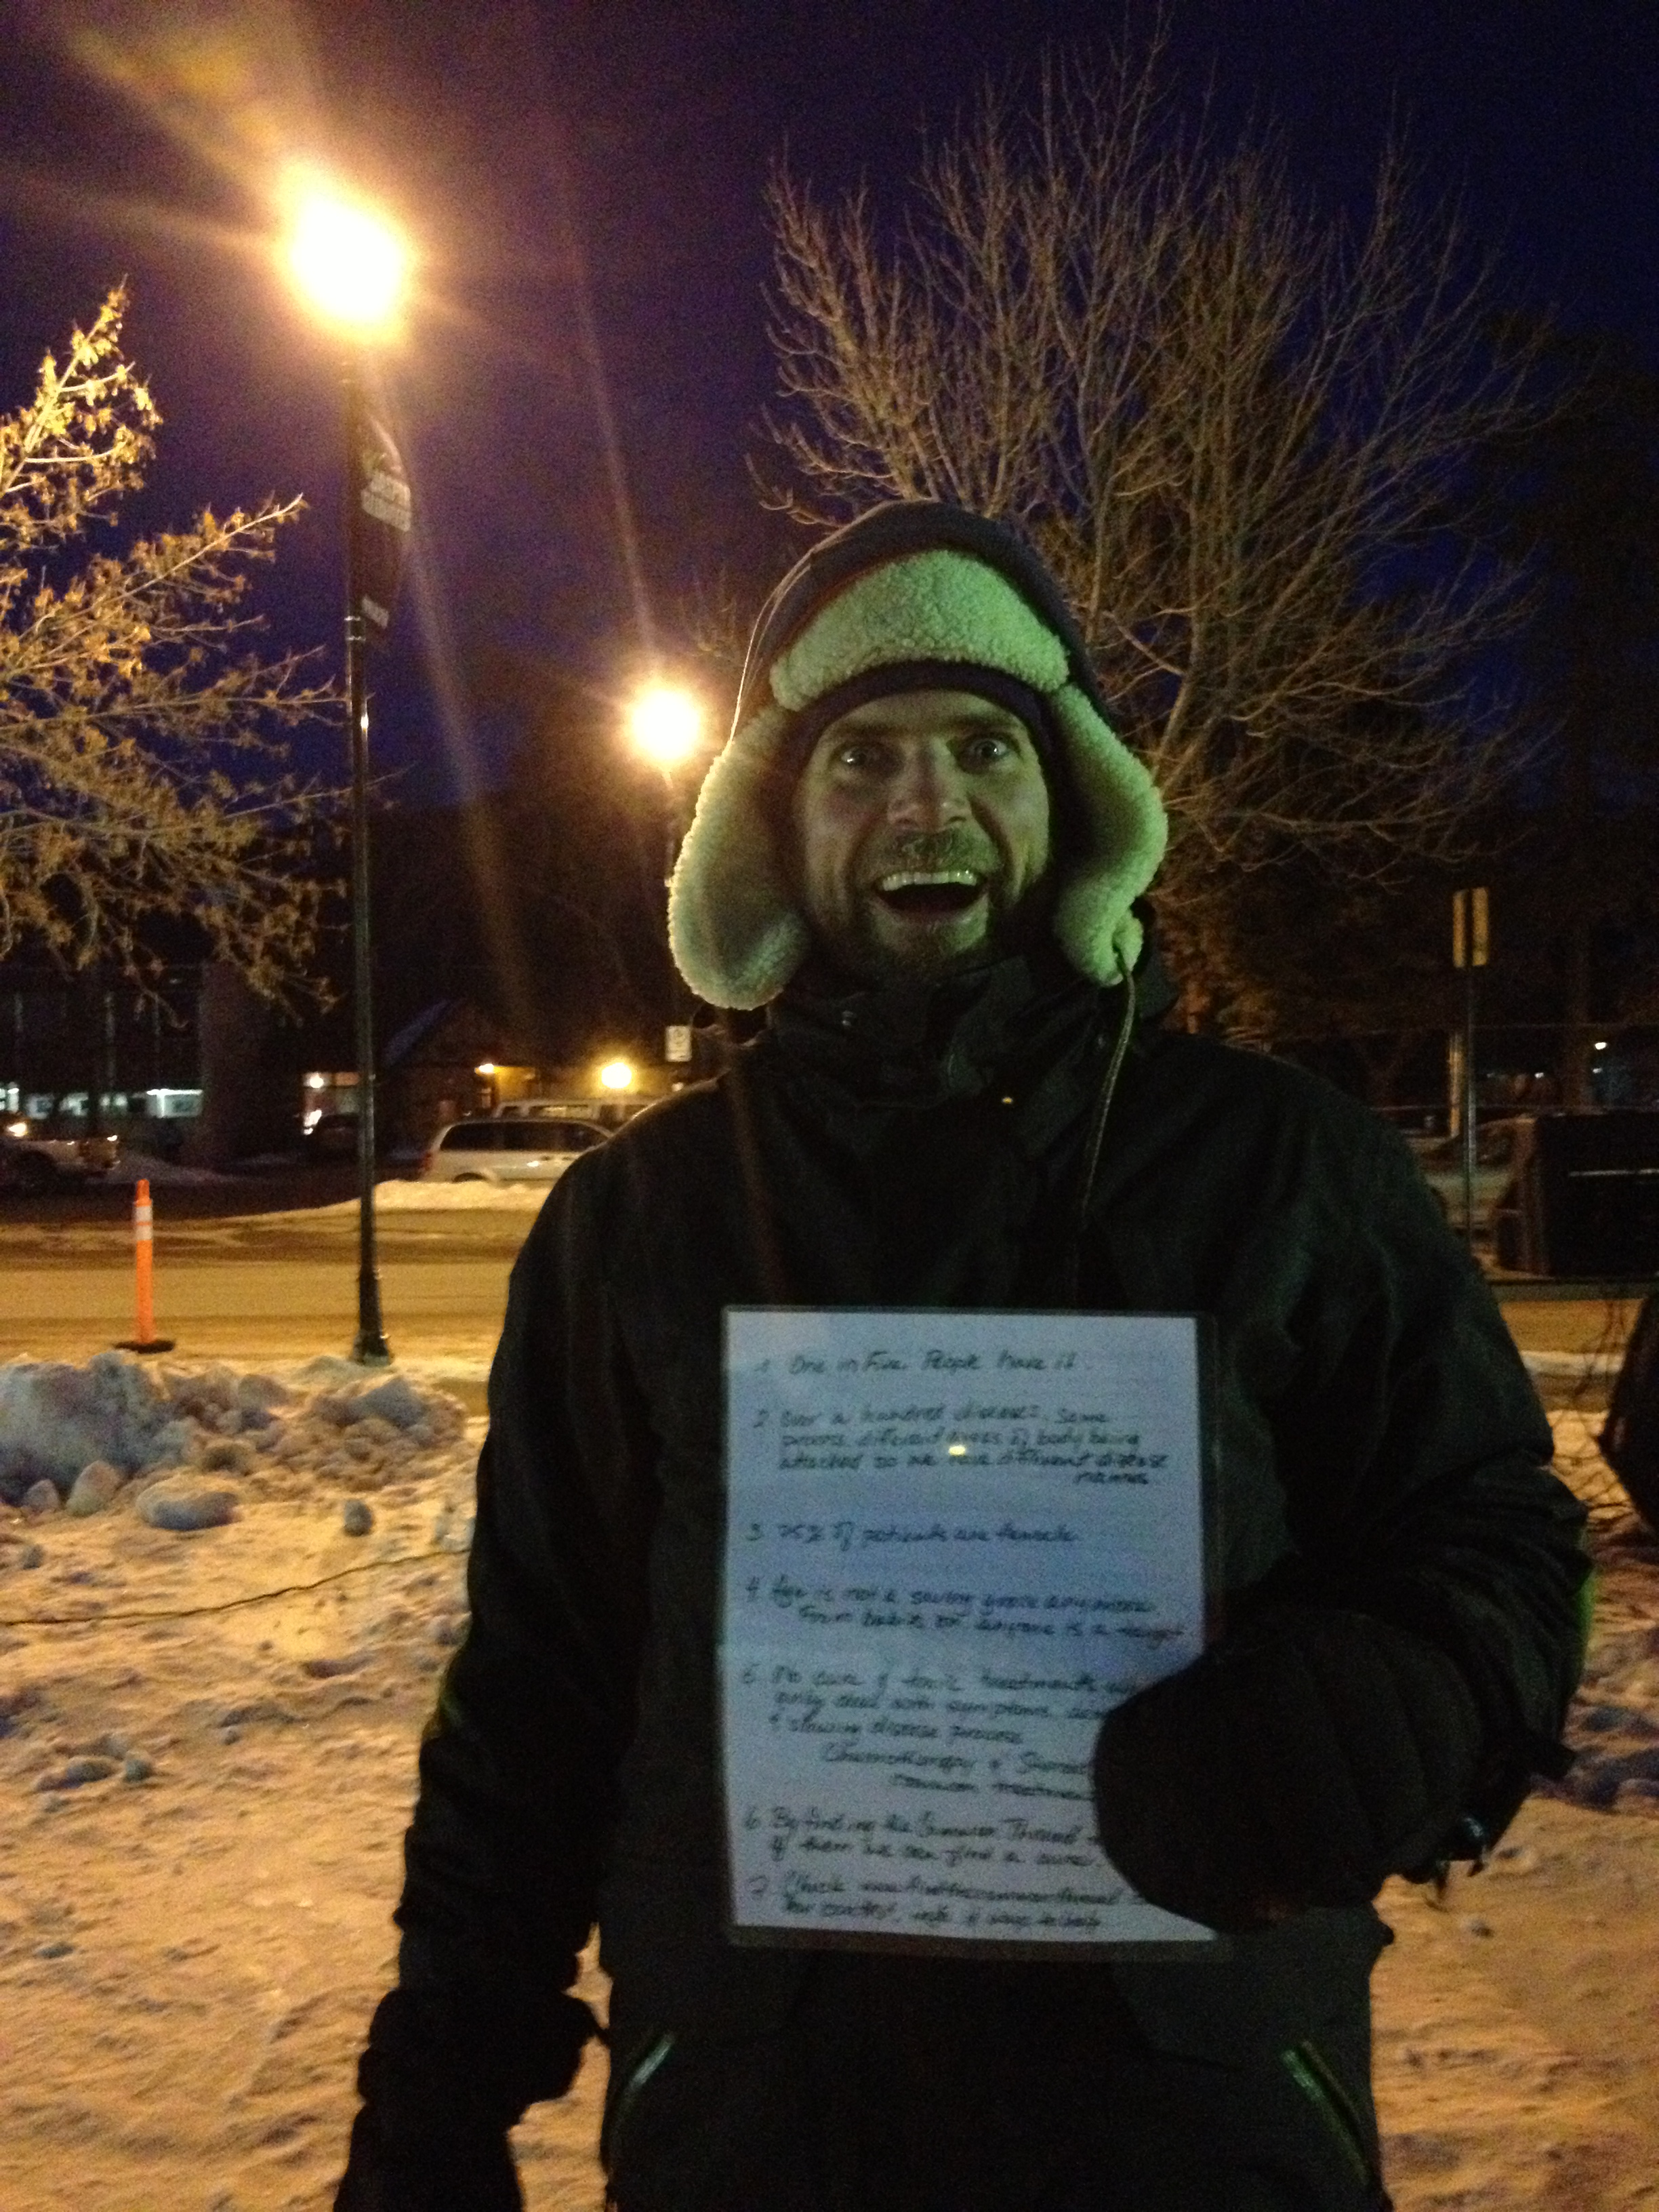 1 One in Five People have it.
2 Over a hundred diseases. Same
process different areas of body being
attacked so we have different disease
names
3 75% of patients are female
4 Age is not a saving grace anymore
From babies on anyone is a target
5 No cure & toxic treatments
only deal with symptoms
& slowing disease process
Chemotherapy &
common
6 By finding the Common Thread
of them we can find a cure.
7 Check
for contact, info & ways to help